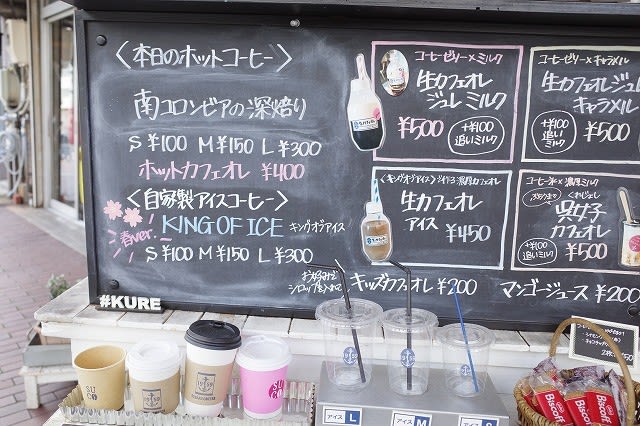 〈本日のホットコーヒー〉
南コロンビアの深焙り
S ¥100 M ¥150 L ¥300
ホットカフェオレ ¥400
〈自家製アイスコーヒー〉
春ver.
KING OF ICE キングオブアイス
S ¥100 M ¥150 L ¥300
お好みで
シロップ
#KURE
コーヒーゼリー×ミルク
生カフェオレ
ジュレ ミルク
¥500
+¥100
追いミルク
コーヒーゼリー×キャラメル
生カフェオレジュレ
キャラメル
+¥100
追いミルク
¥500
生カフェオレ
アイス
¥450
コーヒー氷×濃厚ミルク
呉女子
カフェオレ
+¥100
追いミルク
¥500
キッズカフェオレ ¥200
マンゴージュース ¥200
アイス L
アイス M
アイス S
Biscoff
Biscoff
Biscoff